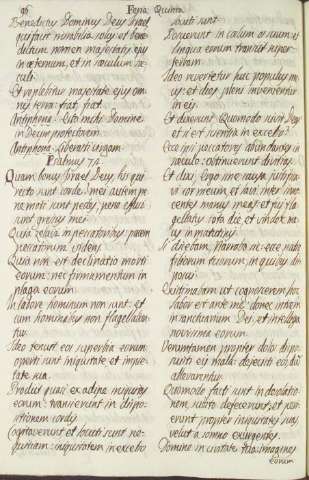 96
Feria Quinta
Benedictus Dominus Deus Israel
qui facit mirabilia solus et bene-
dictum nomen majestatis ejus
in æternum, et in sæculum sæ-
culi
Et replebitur majestate ejus om-
nis terra fiat, fiat.
Antiphona: Esto mihi Domine
in Deum protectorem
Antiphona Liberasti virgam
Psalmus 72
Quam bonus Israel Deus his qui
recto sunt corde
mei autem pe-
ne moti sunt pedes, pene effusi
sunt gressus mei
Quia zelavi
pacem
peccatorum videns
Quia non est declinatio morti
eorum: nec firmamentum in
plaga eorum
In labore hominum non sunt: et
cum hominibus non flagellabun-
tur
Ideo tenuit eos superbia eorum:
operti sunt iniquitate et impie-
tate sua
Prodiit quasi ex adipe iniquitas
eorum: transierunt in dispo-
sitionem cordis
Cogitaverunt et locuti sunt ne-
quitiam: iniquitatem in excelso
locuti sunt
Posuerunt in cœlum os suum et
lingua eorum transivit super
terram
Ideo revertetur huc populus me-
us: et dies pleni invenientur
in eis
Et dixerunt Quomodo scivit Deus
et si est scientia in excelso?
Ecce ipsi peccatores abundantes in
sæculo: obtinuerunt divitias
Et dixi, Ergo sine causa justifica-
vi cor meum, et lavi inter inno-
centes manus meas, et fui fla-
gellatus tota die, et
me-
us in matutinis
Si dicebam, Narrabo sic: ecce natio-
nem filiorum tuorum,
Existimabam ut cognoscerem hoc
labor est ante me: donec intrem
in sanctuarium Dei, et intelligam
novissima eorum
Verumtamen propter dolos dispo-
suisti eis mala: dejecisti eos dum
allevarentur
Quomodo facti sunt in desolatio-
nem, subito defecerunt, et peri-
erunt propter iniquitatem suam
velut a somno exurgentis
Domine in civitate tua imagines
eorum